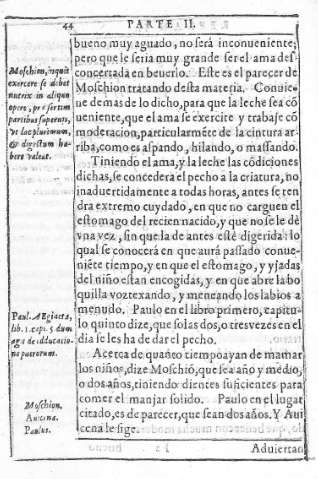 44 PARTE II.
bueno muy aguado, no será inconueniente;
pero que le seria muy grande ser el ama des-
concertada en beuerlo. Este es el parecer de
Moschion tratando desta materia. Conuie-
ne demas de lo dicho, para que la leche sea cõ
ueniente, que el ama se exercite y trabaje cõ
moderacion, particularmẽte de la cintura ar-
riba, como es aspando, hilando, o massando.
Tiniendo el ama, y la leche las cõdiciones
dichas, se concedera el pecho a la criatura, no
inaduertidamente a todas horas, antes se ten
dra extremo cuydado, en que no carguen el
estomago del recien nacido, y que no se le dè
vna vez, sin que la de antes estè digerida: lo
qual se conocerà en que aurà passado conue-
niẽte tiempo, y en que el estomago, y yjadas
del niño estan encogidas, y en que abre la bo
quilla voztexando, y meneando los labios a
menudo. Paulo en el libro primero, capitu-
lo quinto dize, que solas dos, o tres vezes en el
dia se les ha de dar el pecho.
Acerca de quanto tiempo ayan de mamar
los niños, dize Moschiõ, que sea año y medio,
o dos años, tiniendo dientes suficientes para
comer el manjar solido. Paulo en el lugar
citado, es de parecer, que sean dos años. Y Aui
cena le sigue.
Aduiertan
Moschion, inquit
exercere se debet
nutrix in aliquo
opere, præsertim
partibus supernis,
vt lac plurimum,
& digestum ha-
bere valeat.
Paul. Ægineta,
lib. 1. cap. 5. dum
agit de educatio-
ne puerorum.
Moschion,
Auicena.
Paulus.